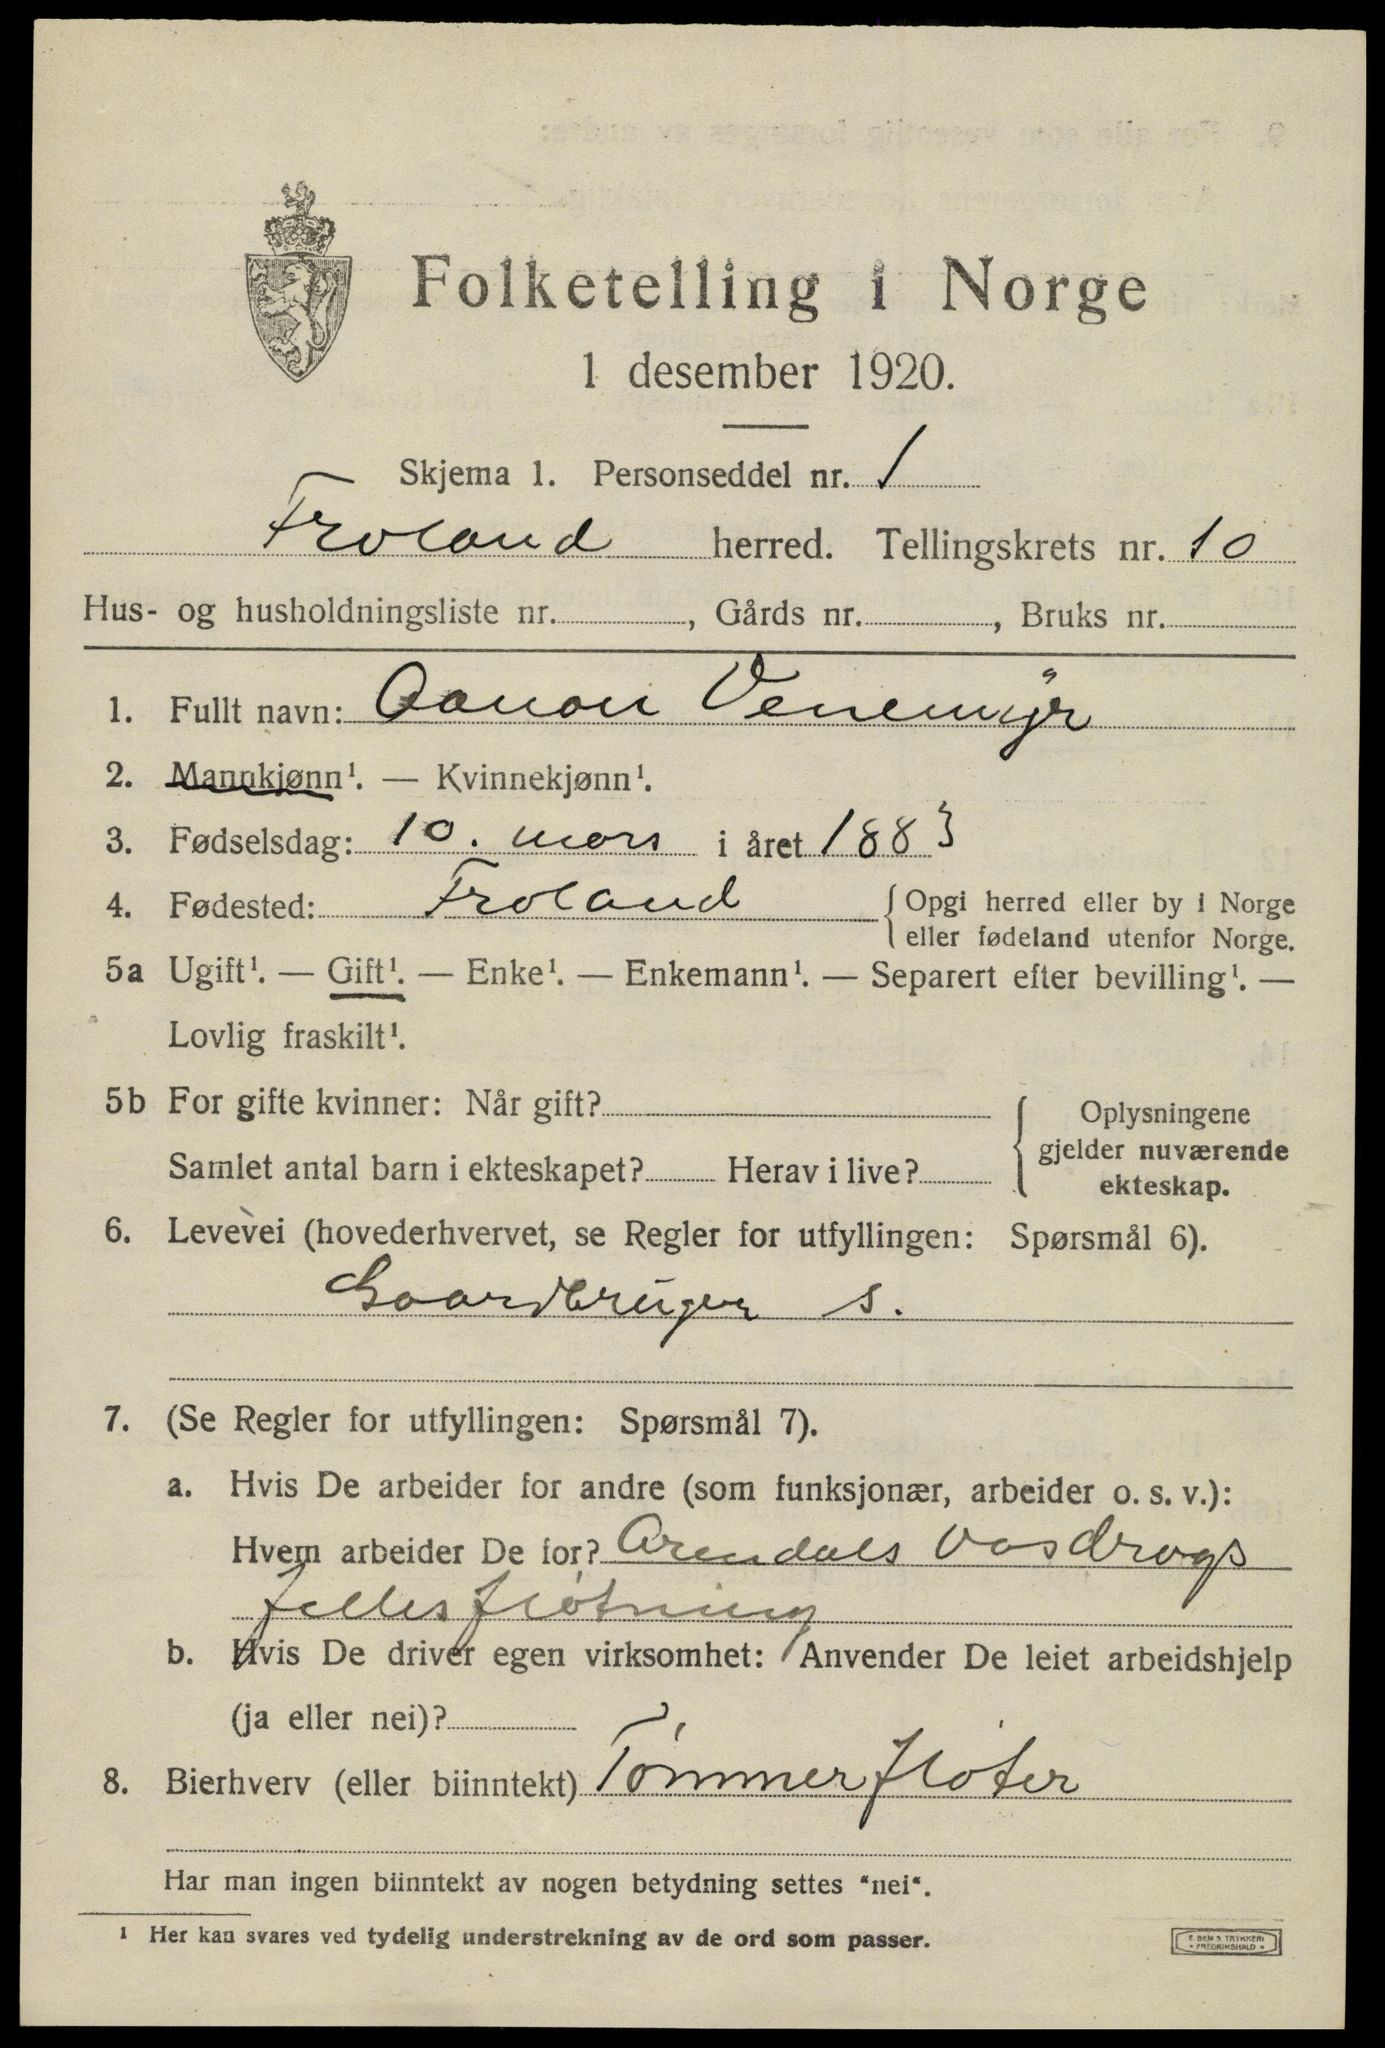 Folketelling i Norge
1 desember 1920.
Skjema 1. Personseddel nr. 1
Froland herred. Tellingskrets nr. 10
Hus- og husholdningsliste nr. , Gårds nr. , Bruks nr.
1. Fullt navn: Aanon Venemyr
2. Mannkjønn¹. — Kvinnekjønn¹.
3. Fødselsdag: 10. mars i året 1883
4. Fødested: Froland {Opgi herred eller by i Norge
eller fødeland utenfor Norge.
5a Ugift¹. — Gift¹. — Enke¹. — Enkemann¹. — Separert efter bevilling¹. —
Lovlig fraskilt¹.
5b For gifte kvinner: Når gift?
Samlet antal barn i ekteskapet? Herav i live?
Oplysningene
gjelder nuværende
ekteskap.
6. Levevei (hovederhvervet, se Regler for utfyllingen: Spørsmål 6).
Gaardbruger s.
7. (Se Regler for utfyllingen: Spørsmål 7).
a. Hvis De arbeider for andre (som funksjonær, arbeider o. s. v.):
Hvem arbeider De for? Arendals Vasdrags
fellesfløtning
b. Hvis De driver egen virksomhet: Anvender De leiet arbeidshjelp
(ja eller nei)?
8. Bierhverv (eller biinntekt) Tømmerfløter
Har man ingen biinntekt av nogen betydning settes "nei".
¹ Her kan svares ved tydelig understrekning av de ord som passer.
E. SEM'S TRYKKERI
FREDRIKSHALD